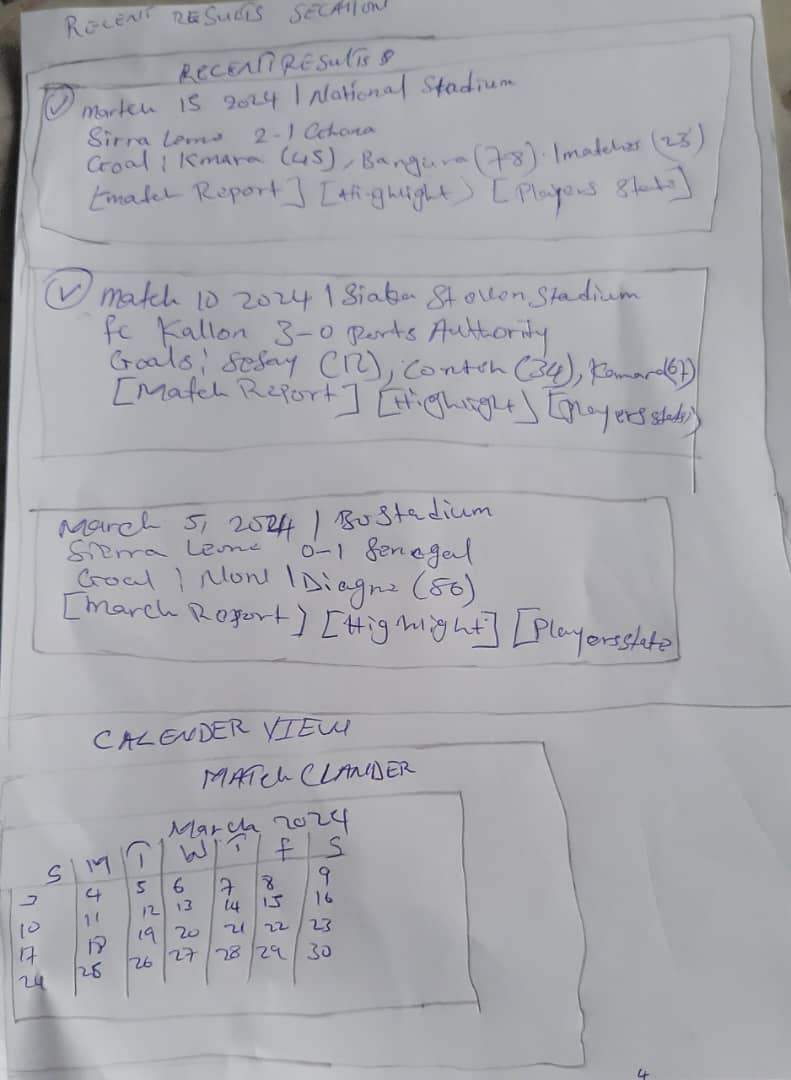 RECENT RESULTS SECATION
RECENT RESULTS
March 15 2024 | National Stadium
Sirra Leone 2-1 Cohana
Goal: Kmara (45), Bangura (78). Imatches (23)
[match Report] [Highlight) [Players State]
match 10 2024 | Siaka Steven Stadium
fc Kallon 3-0 ports Authority
Goals: Sesay (12), Conteh (34), Kamara(67)
[Match Report] [Highlight] [players state]
March 5, 2024 | Bo Stadium
Sierra Leone 0-1 Senegal
Goal: None | Diagne (86)
[March Report) [Highlight] [Players state
CALENDER VIEW
MATCH CLANDER
March 2024
S M T W T F S
3 4 5 6 7 8 9
10 11 12 13 14 15 16
17 18 19 20 21 22 23
24 25 26 27 28 29 30
4